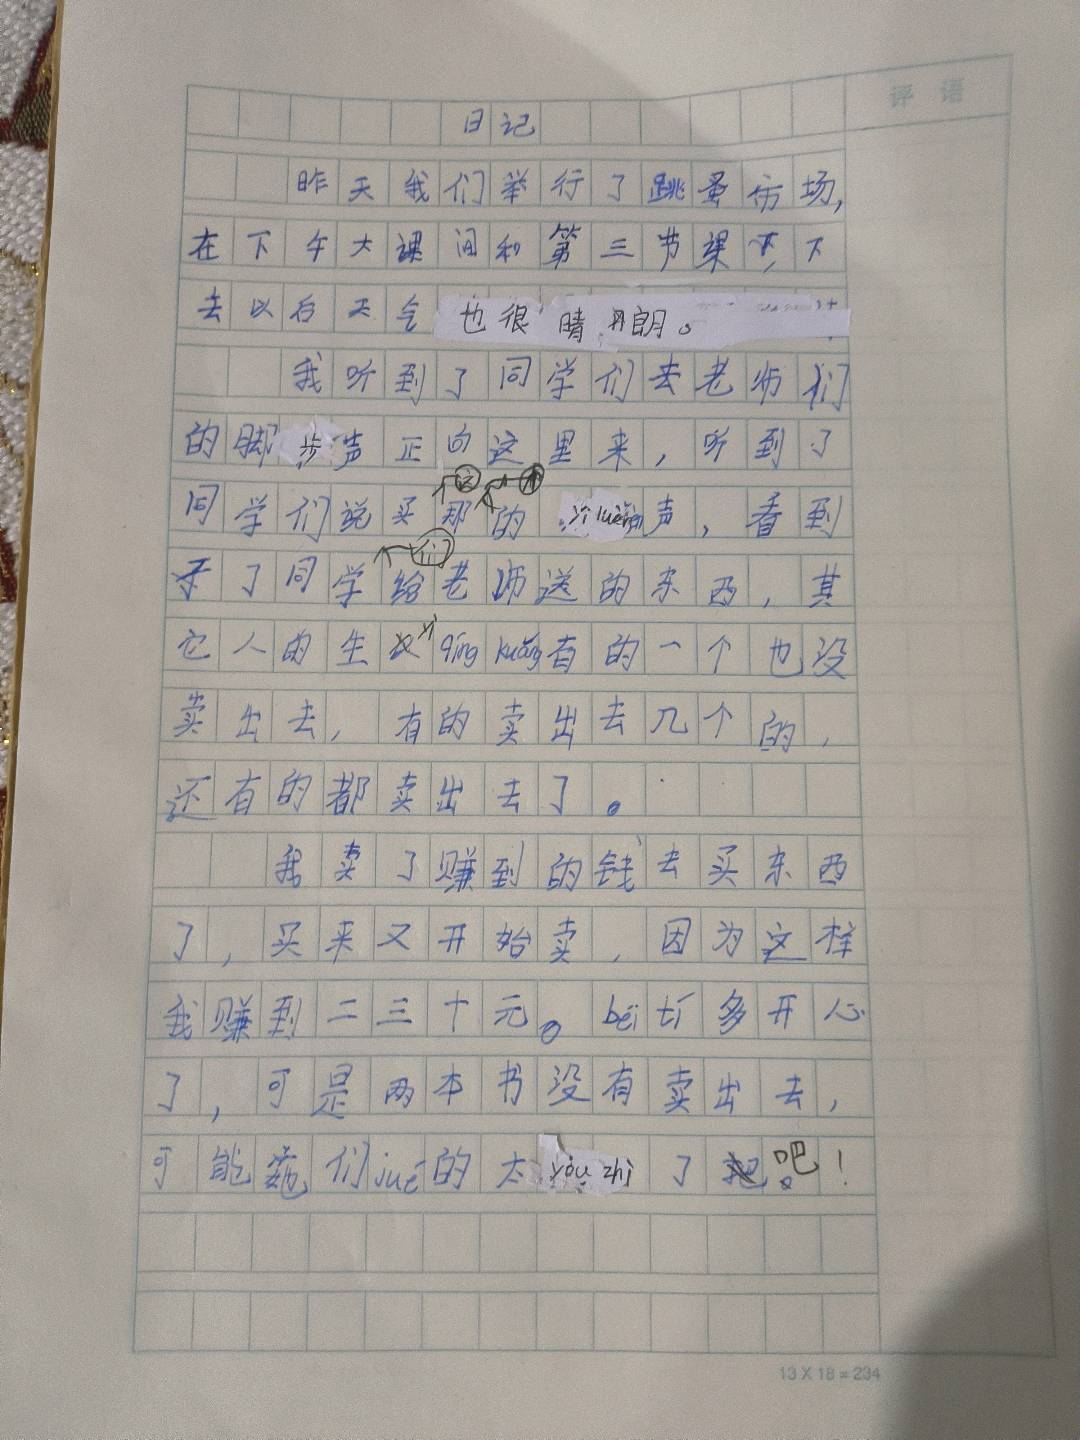 评语
日记
昨天我们举行了跳蚤市场,
在下午大课间和第三节课下,下
去以后天气也很晴朗。
我听到了同学们去老师们
的脚步声正向这里来,听到了
同学们说买那的yì lùn声,看到
了同学们给老师送的东西,其
它人的生yì qíng kuàng有的一个也没
卖出去,有的卖出去几个的,
还有的都卖出去了。
我卖了赚到的钱去买东西
了,买来又开始卖,因为这样
我赚到二三十元。béi tí多开心
了,可是两本书没有卖出去,
可能他们jué的太yòu zhì了吧!
13 X 18 = 234